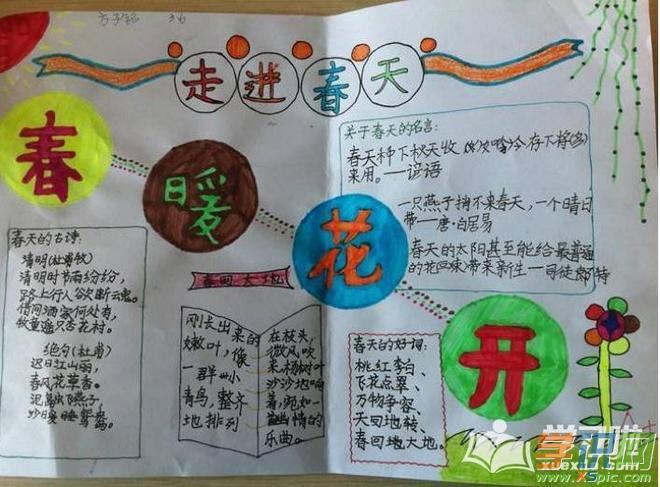 走进春天
春
暖
花
开
春天的古诗:
清明(杜牧)
清明时节雨纷纷,
路上行人欲断魂。
借问酒家何处有,
牧童遥只杏花村。
绝句(杜甫)
迟日江山丽,
春风花草香。
泥融飞燕子,
沙暖睡鸳鸯。
春回大地
刚长出来的
嫩叶,像
一群小
青鸟,整齐
地排列
在枝头,
微风吹
来,杨树叶
沙沙地响
着,宛如一
首出情的
乐曲。
关于春天的名言:
春天种下秋天收
来用。——谚语
一只燕子捎不来春天,一个晴日
带—唐·白居易
春天的太阳甚至能给最普通
的花带来新生—司徒郎特
春天的好词:
桃红李白、
飞花点翠、
万物争容、
天回地转、
春回地大地。
A+
学识啦
xuexila.com
www.xspic.com